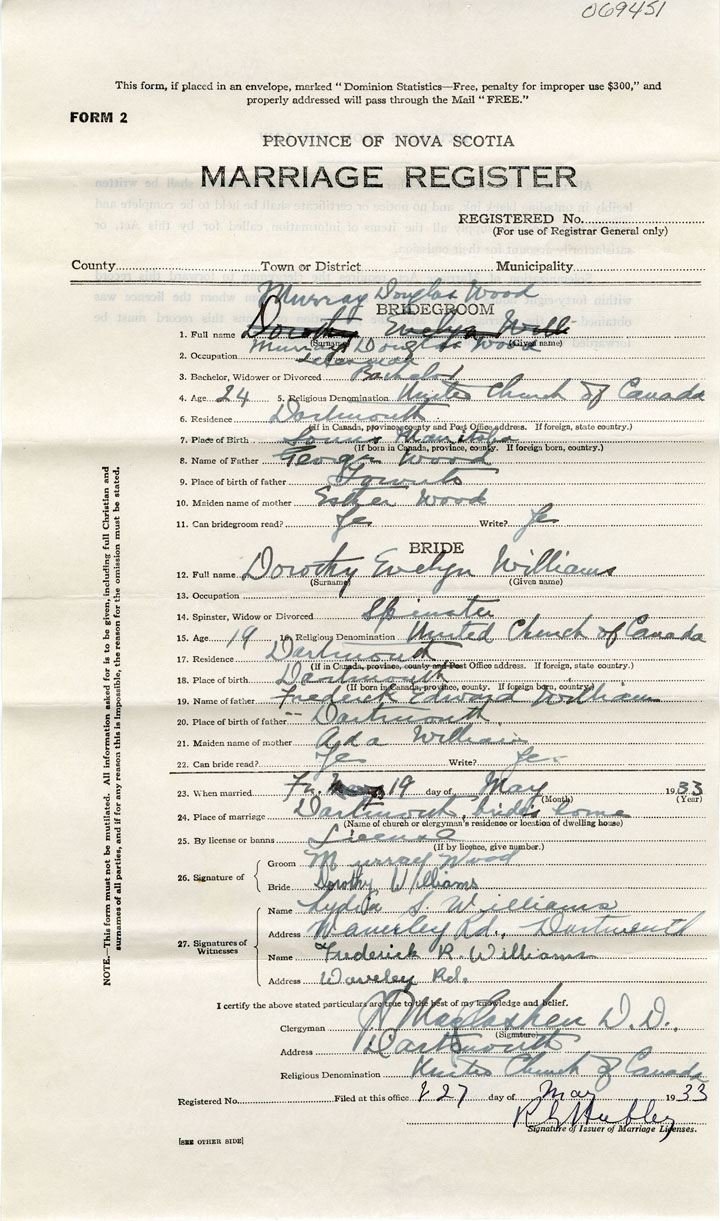 069451
This form, if placed in an envelope, marked "Dominion Statistics—Free, penalty for improper use $300," and
properly addressed will pass through the Mail "FREE."
FORM 2
PROVINCE OF NOVA SCOTIA
MARRIAGE REGISTER
REGISTERED No.
(For use of Registrar General only)
County Town or District Municipality
Murray Douglas Wood
BRIDEGROOM
1. Full name Dorothy Evelyn Will
(Surname) (Given name)
Murray Douglas Wood
2. Occupation
3. Bachelor, Widower or Divorced Bachelor
4. Age 24 5. Religious Denomination United Church of Canada
6. Residence Dartmouth
(If in Canada, province, county and Post Office address. If foreign, state country.)
7. Place of Birth Manitoba
(If born in Canada, province, county. If foreign born, country.)
8. Name of Father George Wood
9. Place of birth of father
10. Maiden name of mother Esther Wood
11. Can bridegroom read? Yes Write? Yes
BRIDE
12. Full name Dorothy Evelyn Williams
(Surname) (Given name)
13. Occupation
14. Spinster, Widow or Divorced Spinster
15. Age 19 16. Religious Denomination United Church of Canada
17. Residence Dartmouth
(If in Canada, province, county and Post Office address. If foreign, state country.)
18. Place of birth Dartmouth
(If born in Canada, province, county. If foreign born, country.)
19. Name of father Frederick Edward Williams
20. Place of birth of father Dartmouth
21. Maiden name of mother Ada Williams
22. Can bride read? Yes Write? Yes
23. When married Fri. 19 day of May 1933
(Month) (Year)
24. Place of marriage Dartmouth, bride's home
(Name of church or clergyman's residence or location of dwelling house)
25. By license or banns License
(If by licence, give number.)
26. Signature of
Groom Murray Wood
Bride Dorothy Williams
27. Signatures of Witnesses
Name Lydia S. Williams
Address Waverley Rd., Dartmouth
Name Frederick R. Williams
Address Waveley Rd.
I certify the above stated particulars are true to the best of my knowledge and belief.
Clergyman D.D.,
(Signature)
Address Dartmouth
Religious Denomination United Church of Canada
Registered No. Filed at this office 27 day of May 1933
Signature of Issuer of Marriage Licenses.
[SEE OTHER SIDE]
NOTE.—This form must not be mutilated. All information asked for is to be given, including full Christian and
surnames of all parties, and if for any reason this is impossible, the reason for the omission must be stated.